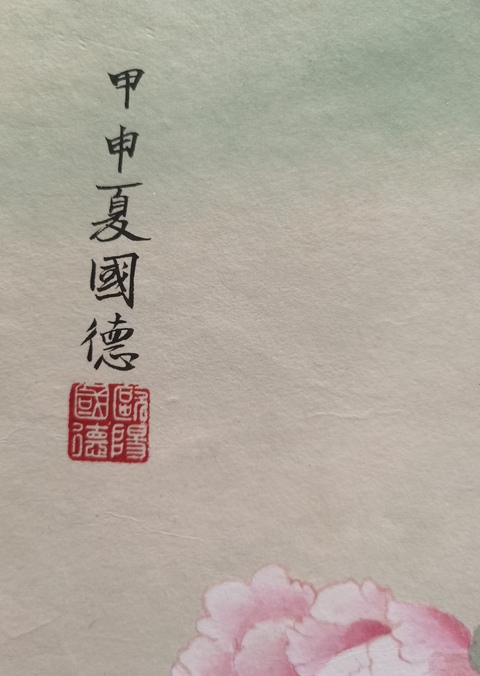 甲申夏國德
歐陽國德